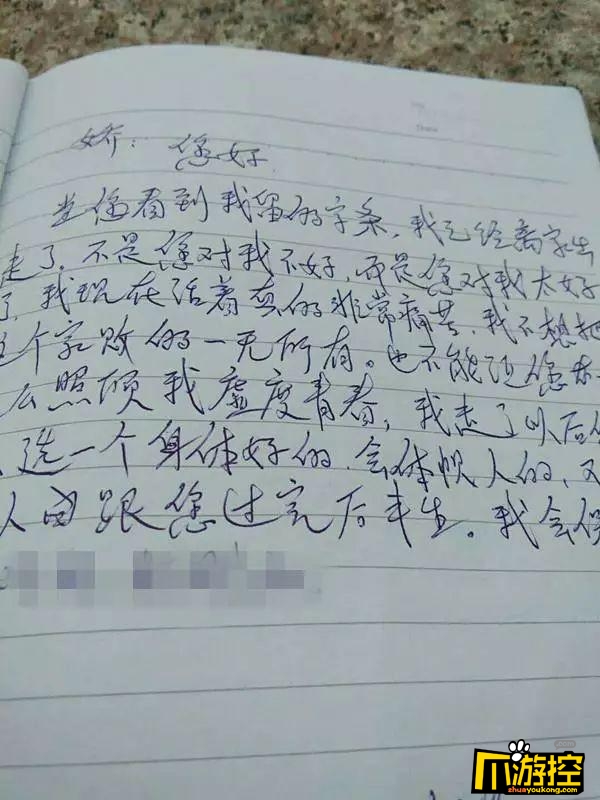 娇：您好
当您看到我留的字条，我已经离家出
走了，不是您对我不好，而是您对我太好
了，我现在活着真的非常痛苦，我不想把
这个家败的一无所有。也不能让您
么照顾我虚度青春，我走了以后
选一个身体好的，会体
人 跟您过完后半生。我会
爪游控
zhuayoukong.com